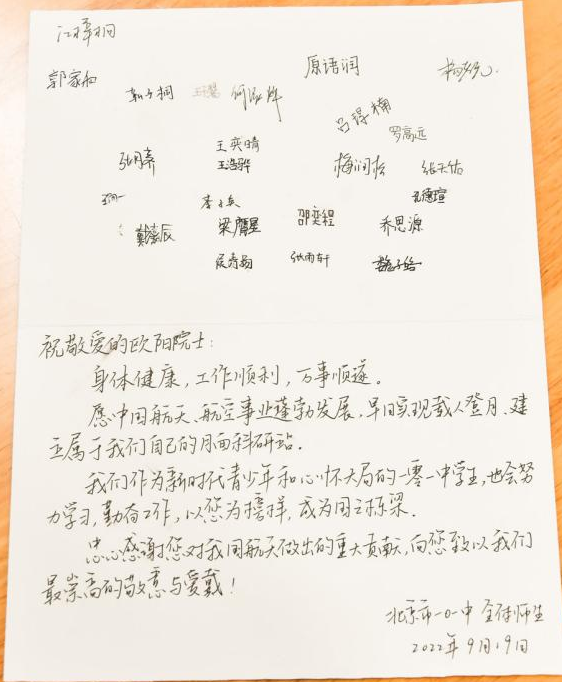 江梓桐
郭家和 原语润
靳子桐 何泓烨
吕梓楠 罗高远
王奕晴
张月莽 王浩骅 梅润松 张天佑
李子兵 孔德瑄
戴嘉辰 梁膺星 邵奕程 乔思源
侯秀翙 张雨轩
祝敬爱的欧阳院士：
身体健康，工作顺利，万事顺遂。
愿中国航天、航空事业蓬勃发展，早日实现载人登月、建
立属于我们自己的月面科研站。
我们作为新时代青少年和心怀大局的一零一中学生，也会努
力学习，勤奋工作，以您为榜样，成为国之栋梁。
衷心感谢您对我国航天做出的重大贡献，向您致以我们
最崇高的敬意与爱戴！
北京市一〇一中 全体师生
2022年9月19日